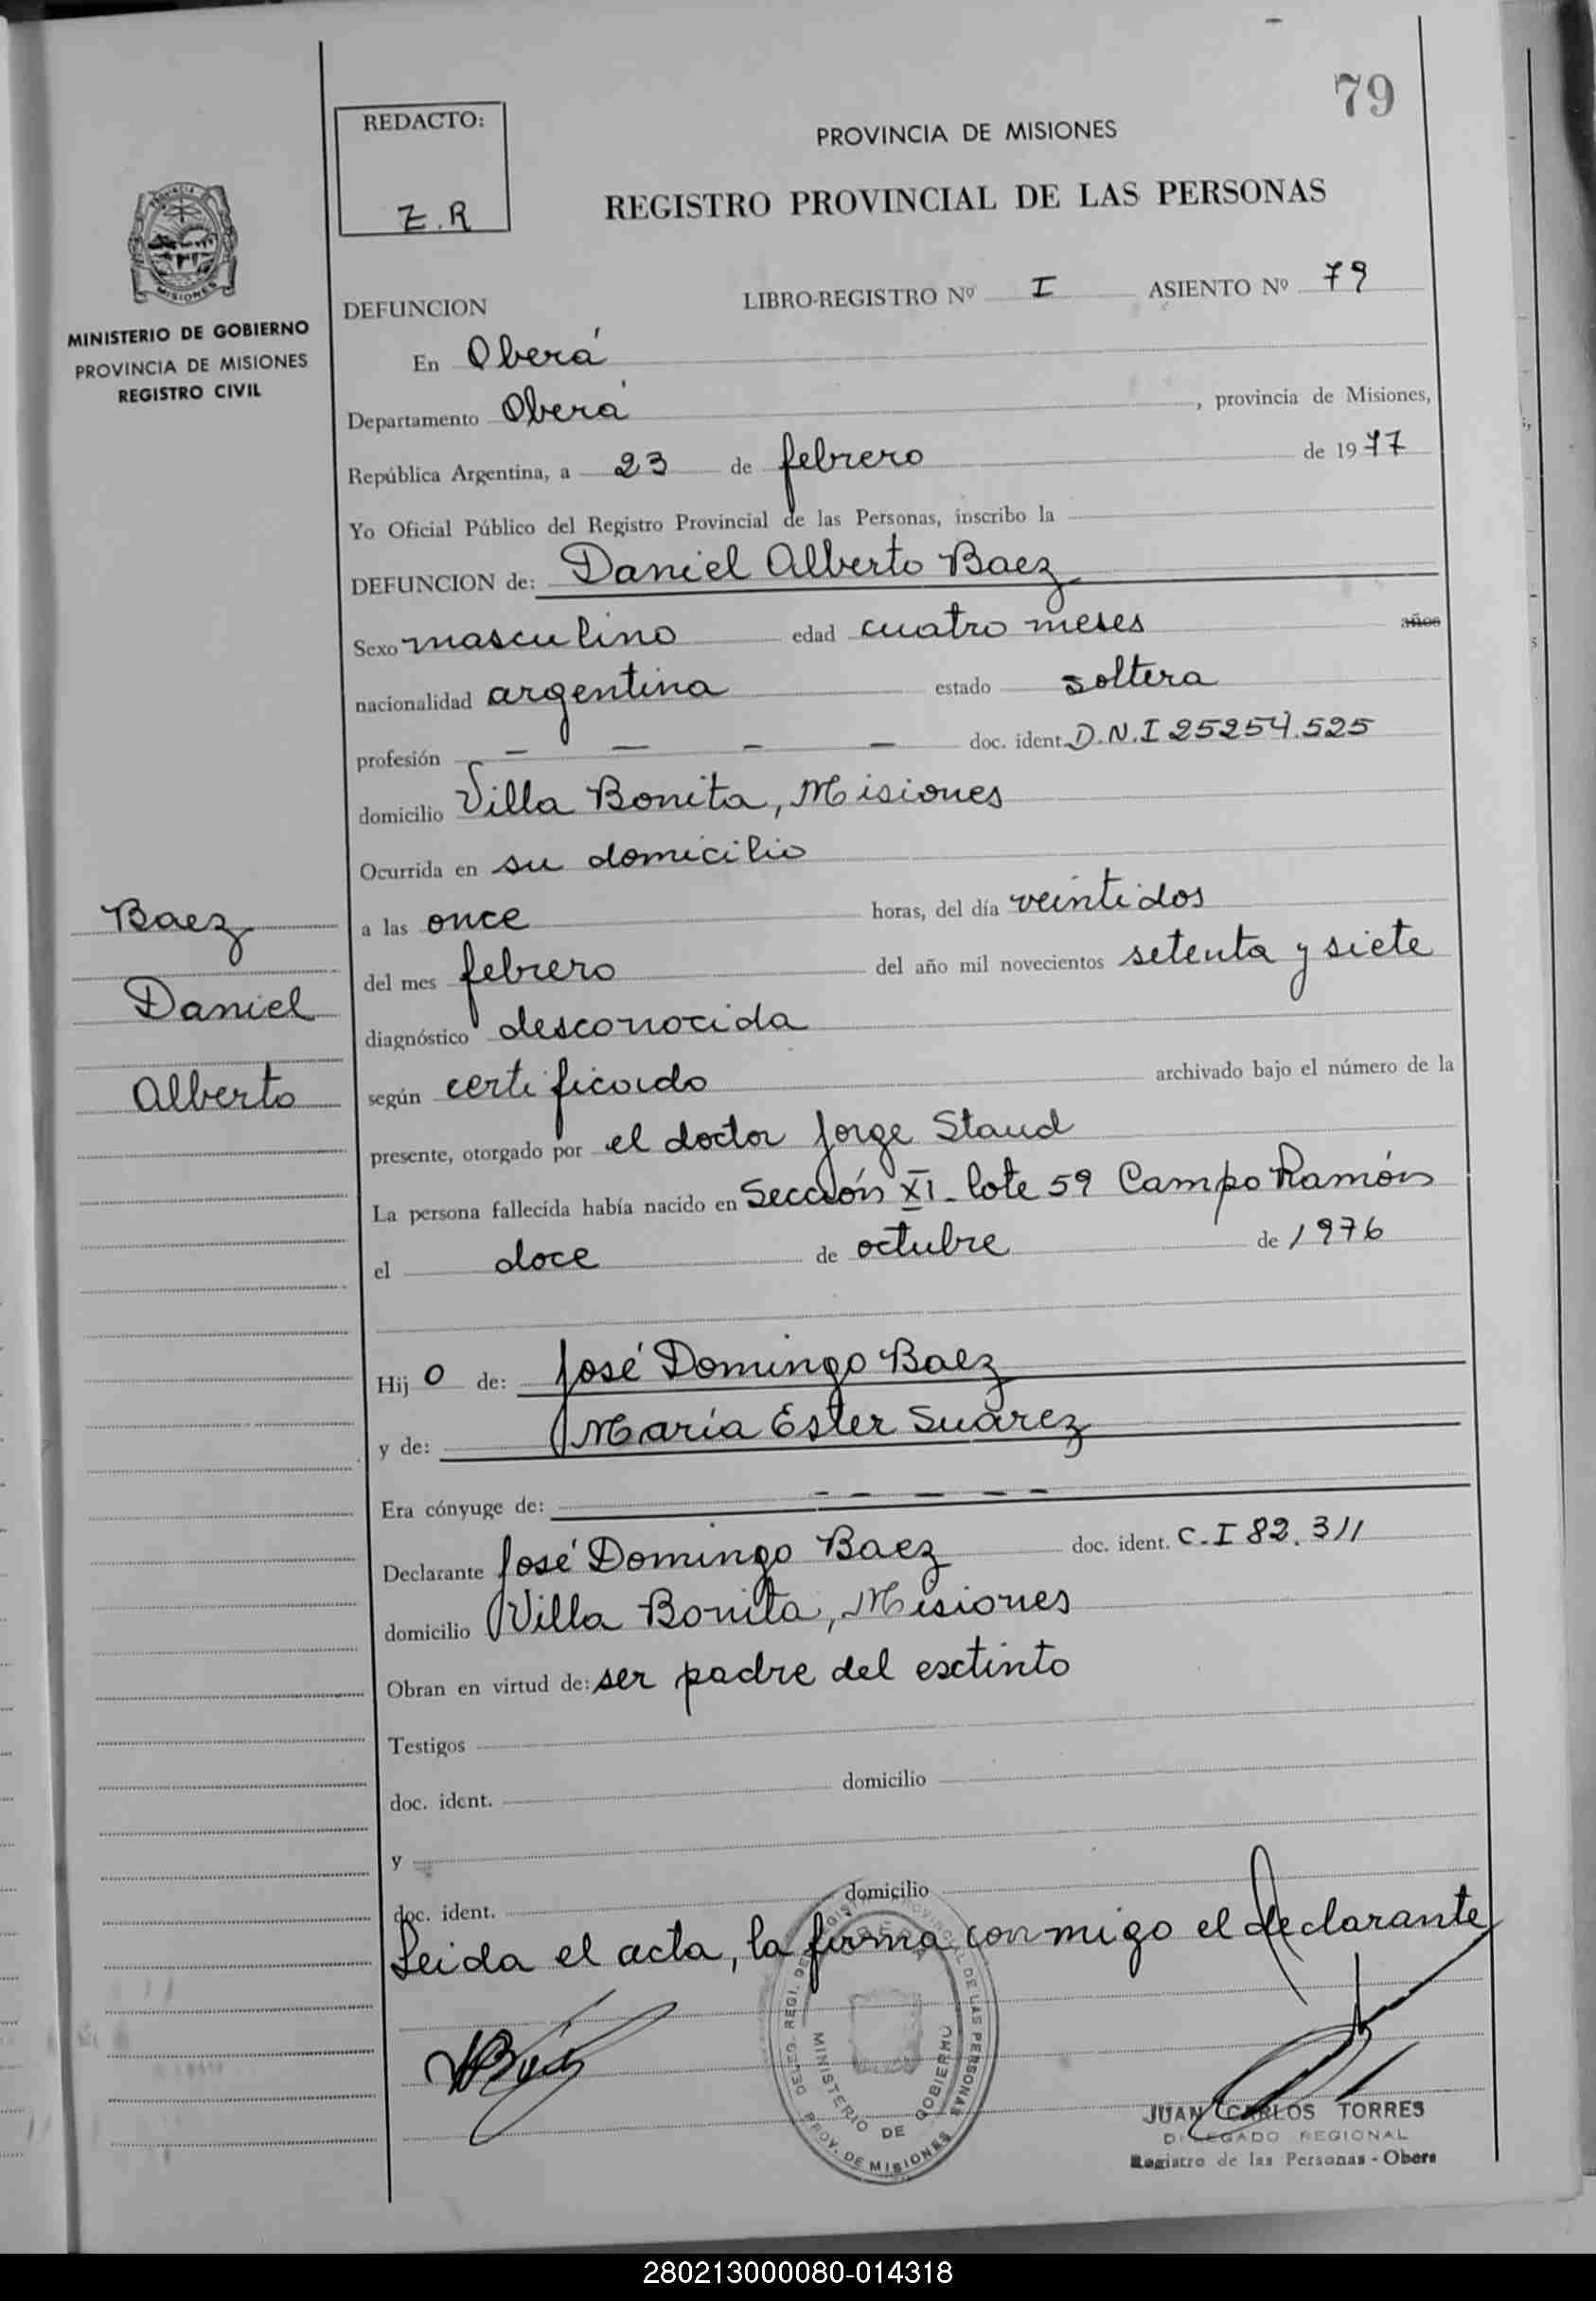 79
REDACTO:
Z.R
PROVINCIA DE MISIONES
REGISTRO PROVINCIAL DE LAS PERSONAS
PROVINCIA
MISIONES
MINISTERIO DE GOBIERNO
PROVINCIA DE MISIONES
REGISTRO CIVIL
DEFUNCION LIBRO-REGISTRO Nº I ASIENTO Nº 79
En Oberá
Departamento Oberá, provincia de Misiones,
República Argentina, a 23 de febrero de 1977
Yo Oficial Público del Registro Provincial de las Personas, inscribo la
DEFUNCION de: Daniel Alberto Baez
Sexo masculino edad cuatro meses años
nacionalidad argentina estado soltera
profesión — — — — doc. ident. D.N.I 25254.525
domicilio Villa Bonita, Misiones
Ocurrida en su domicilio
Baez
Daniel
Alberto
a las once horas, del día veintidos
del mes febrero del año mil novecientos setenta y siete
diagnóstico desconocida
según certificado archivado bajo el número de la
presente, otorgado por el doctor Jorge Staud
La persona fallecida había nacido en Sección XI - lote 59 Campo Ramón
el doce de octubre de 1976
Hij o de: José Domingo Baez
y de: María Ester Suárez
Era cónyuge de: — — — — —
Declarante José Domingo Baez doc. ident. C.I 82.311
domicilio Villa Bonita, Misiones
Obran en virtud de: ser padre del esctinto
Testigos
doc. ident. domicilio
y
doc. ident. domicilio
Leida el acta, la firma conmigo el declarante
MINISTERIO DE GOBIERNO
PROV. DE MISIONES
JUAN CARLOS TORRES
DELEGADO REGIONAL
Registro de las Personas - Obera
280213000080-014318